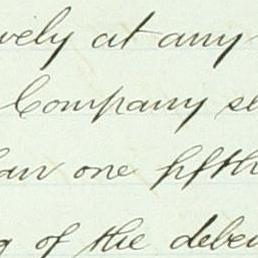 vely at any
Company se
an one fifth
g of the debe